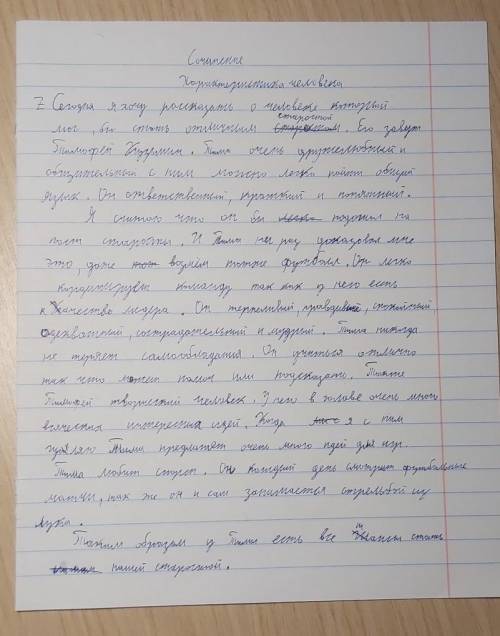 Сочинение
Характеристика человека
Z Сегодня я хочу рассказать о человеке который
мог, бы стать отличным старостой. Его зовут
Тимофей Кузьмин. Тима очень дружелюбный и
общительный с ним можно легко найти общий
язык. Он ответственный, краткий и понятный.
Я считаю что он бы подошел на
пост старосты. И Тима не раз доказывал мне
это, даже возмём тотже футбол. Он легко
командой так как у него есть
качество лидера. Он терпеливый, правдивый, спокойный,
адекватный, сострадательный и мудрый. Тима никогда
не теряет самообладания. Он учиться отлично
так что может помоч или подсказать. Также
Тимофей творческий человек. У него в голове очень много
всяческих интересных идей. Когда я с ним
гуляю Тима предлагает очень много идей для игр.
Тима любит спорт. Он каждый день смотрит футбольные
матчи, так же он и сам занимается стрельбой из
лука.
Таким образом у Тимы есть все шансы стать
нашей старостой.